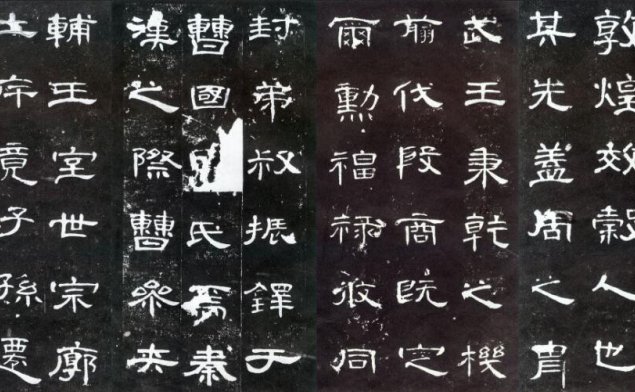 敦煌效穀人也
其先蓋周之胄
武王秉乾之機
翦伐殷商既定
爾勳福祿攸同
封弟叔振鐸于
曹國氏焉秦
漢之際曹參夾
輔王室世宗廓
土斥竟子孫遷